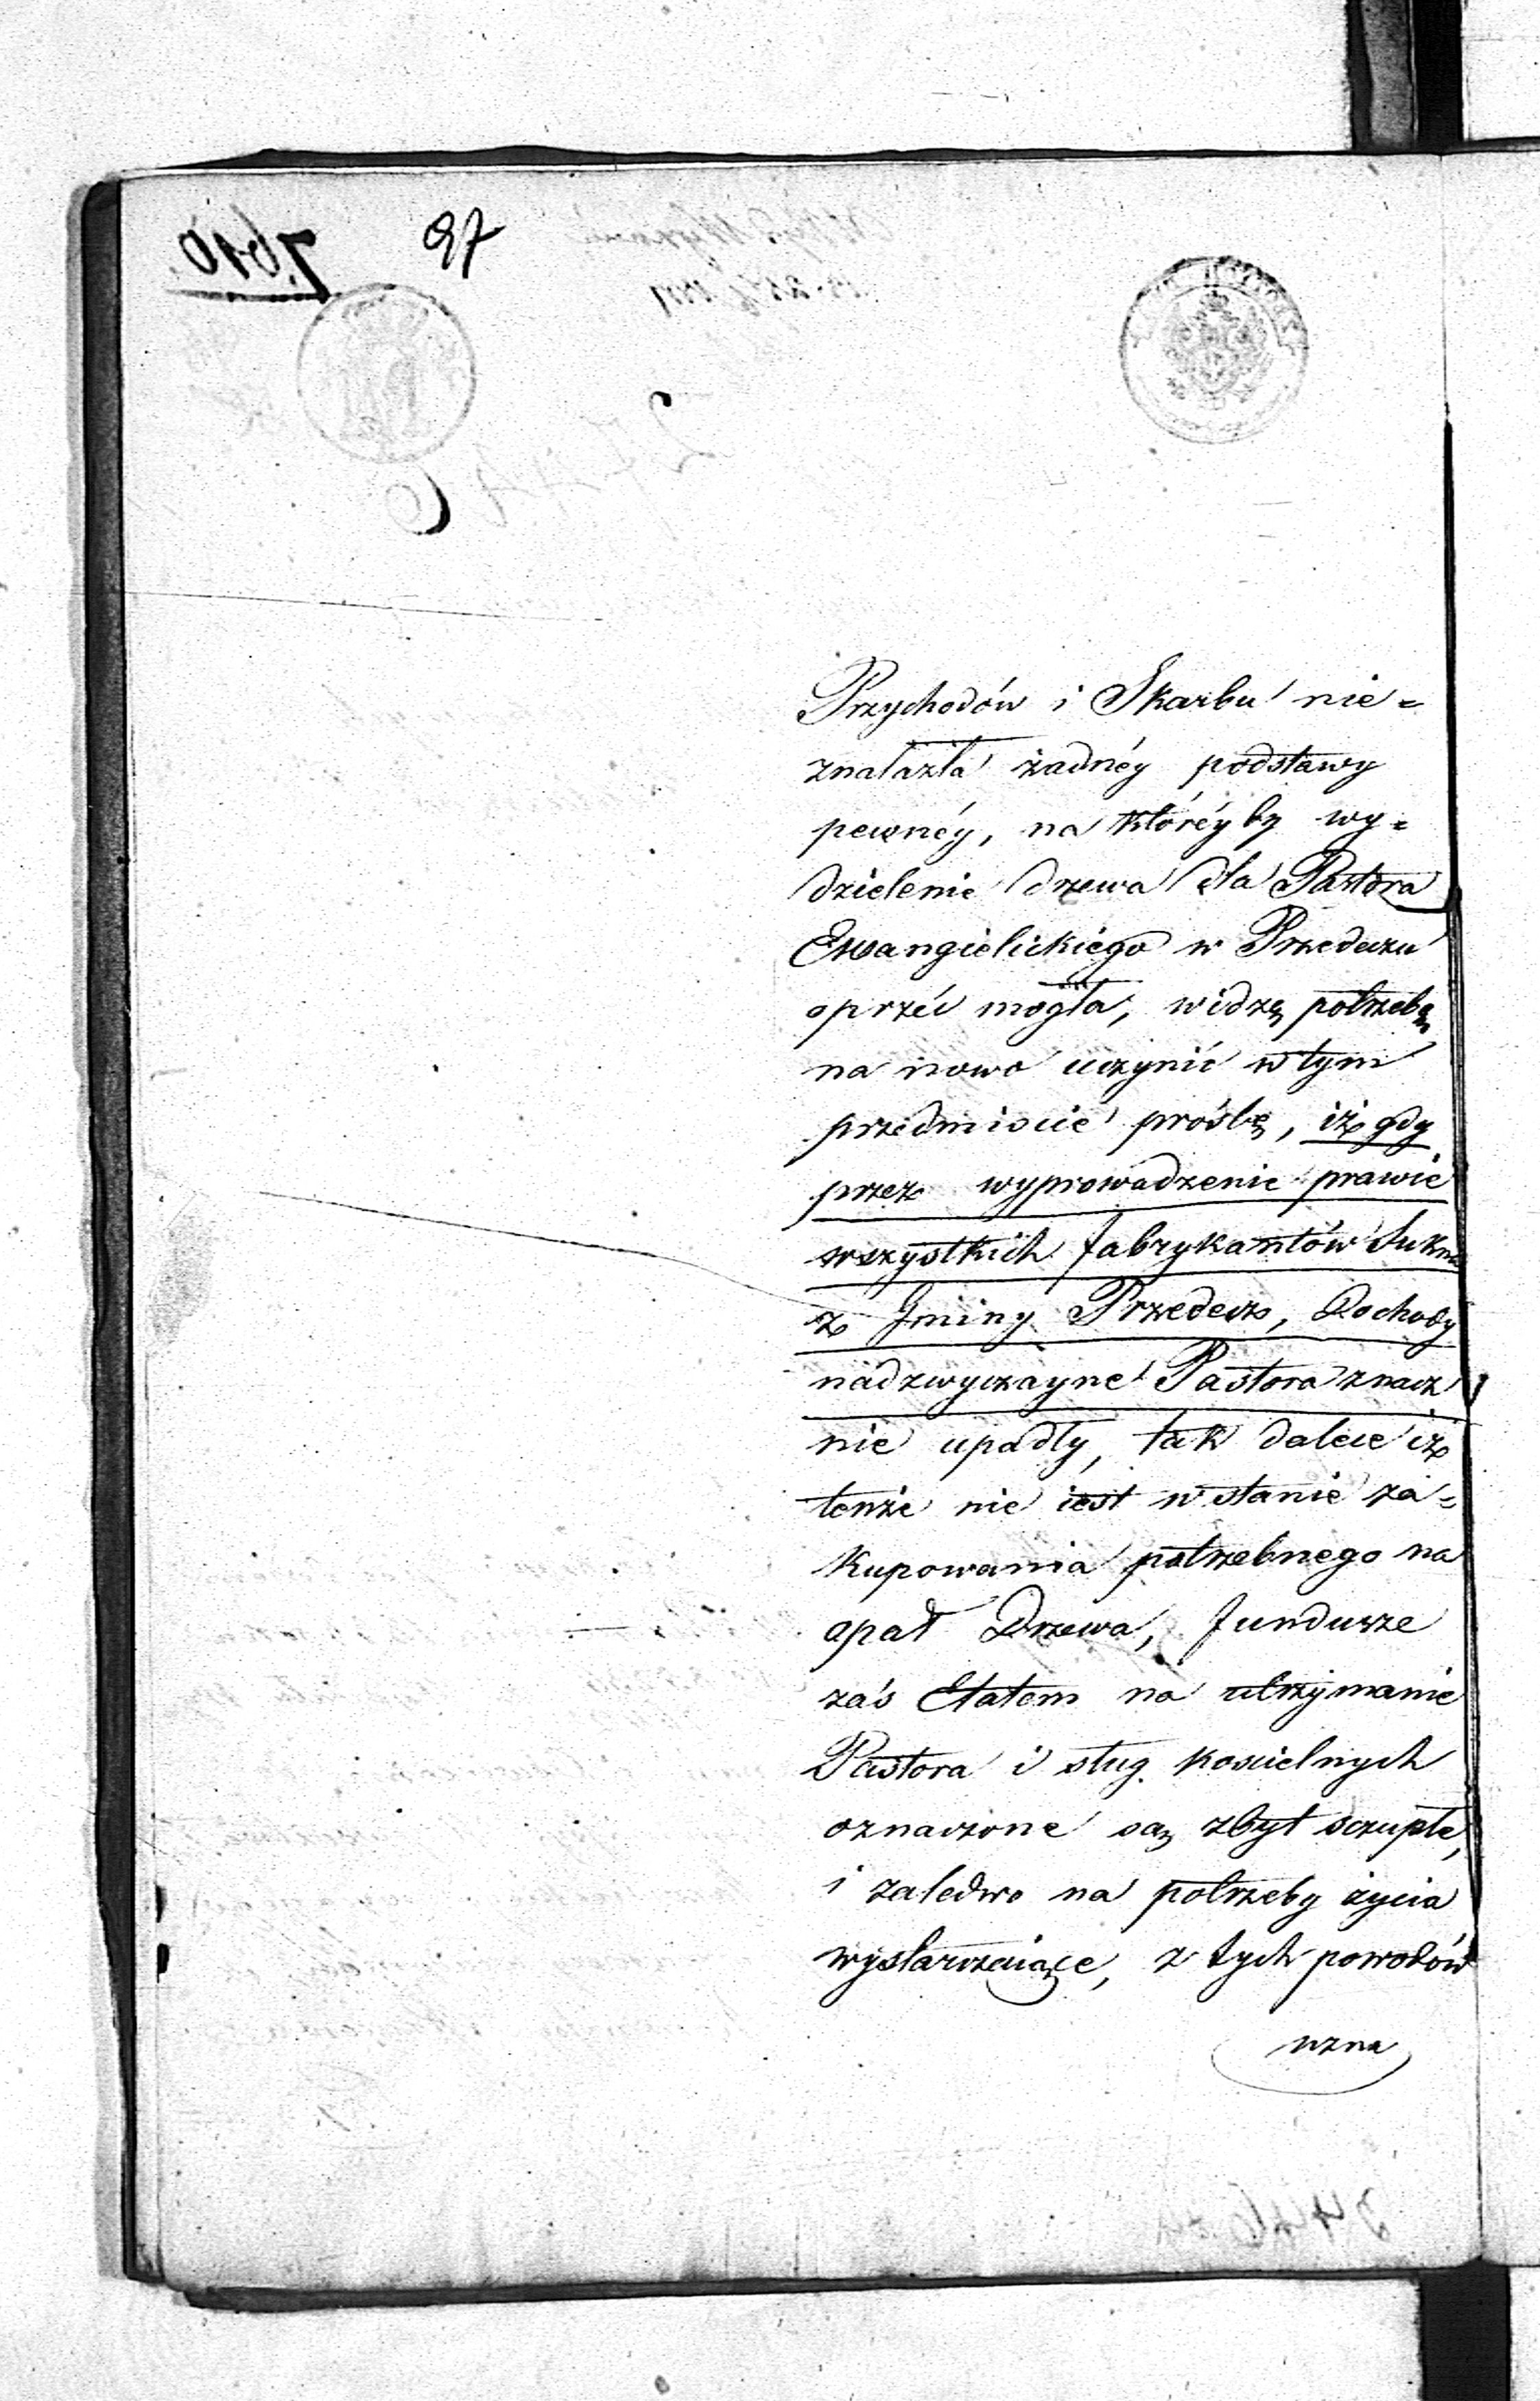 97
Przychodów i Skarbu nie=
znalazła żadnéy podstawy
pewnéy, na któréy by wy=
dzielenie drzewa dla Pastora
Ewangielickiego w Przedeczu
oprzéć mogła, widzę potrzebę
na nowo uczynić w tym
przedmiocie prośbę, iż gdy
przez wyprowadzenie prawie
wszystkich fabrykantów Sukna
z Gminy Przedecz, Dochody
nadzwyczayne Pastora znacz
nie upadły, tak dalece iż
tenże nie iest w stanie za=
kupowania potrzebnego na
opał Drzewa, fundusze
zaś Etatem na utrzymanie
Pastora i sług kościelnych
oznaczone są zbyt sczupłe,
i zaledwo na potrzeby życia
wystarczaiące, z tych powodów
uzna